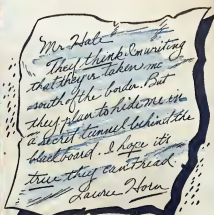 Mr Hale
They think I'm writing
that they're taken me
south of the border. But
they plan to hide me in
a secret tunnel behind the
blackboard. I hope it's
true they can't read
Laurie Horn